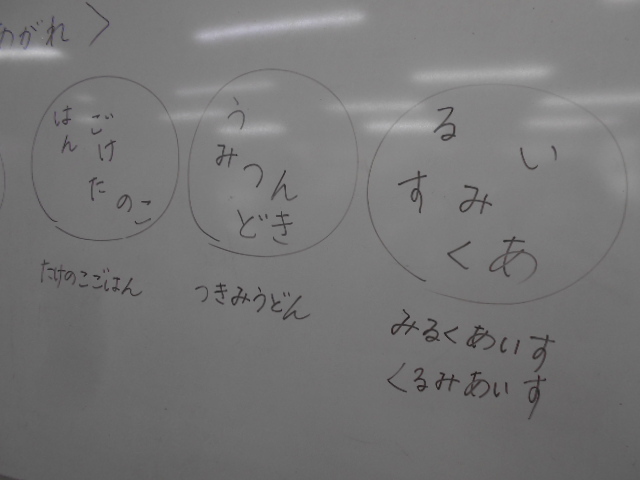 がれ>
は ご
ん け
た
のこ
う
み
つん
どき
る
い
すみ
くあ
たけのこごはん
つきみうどん
みるくあいす
くるみあいす